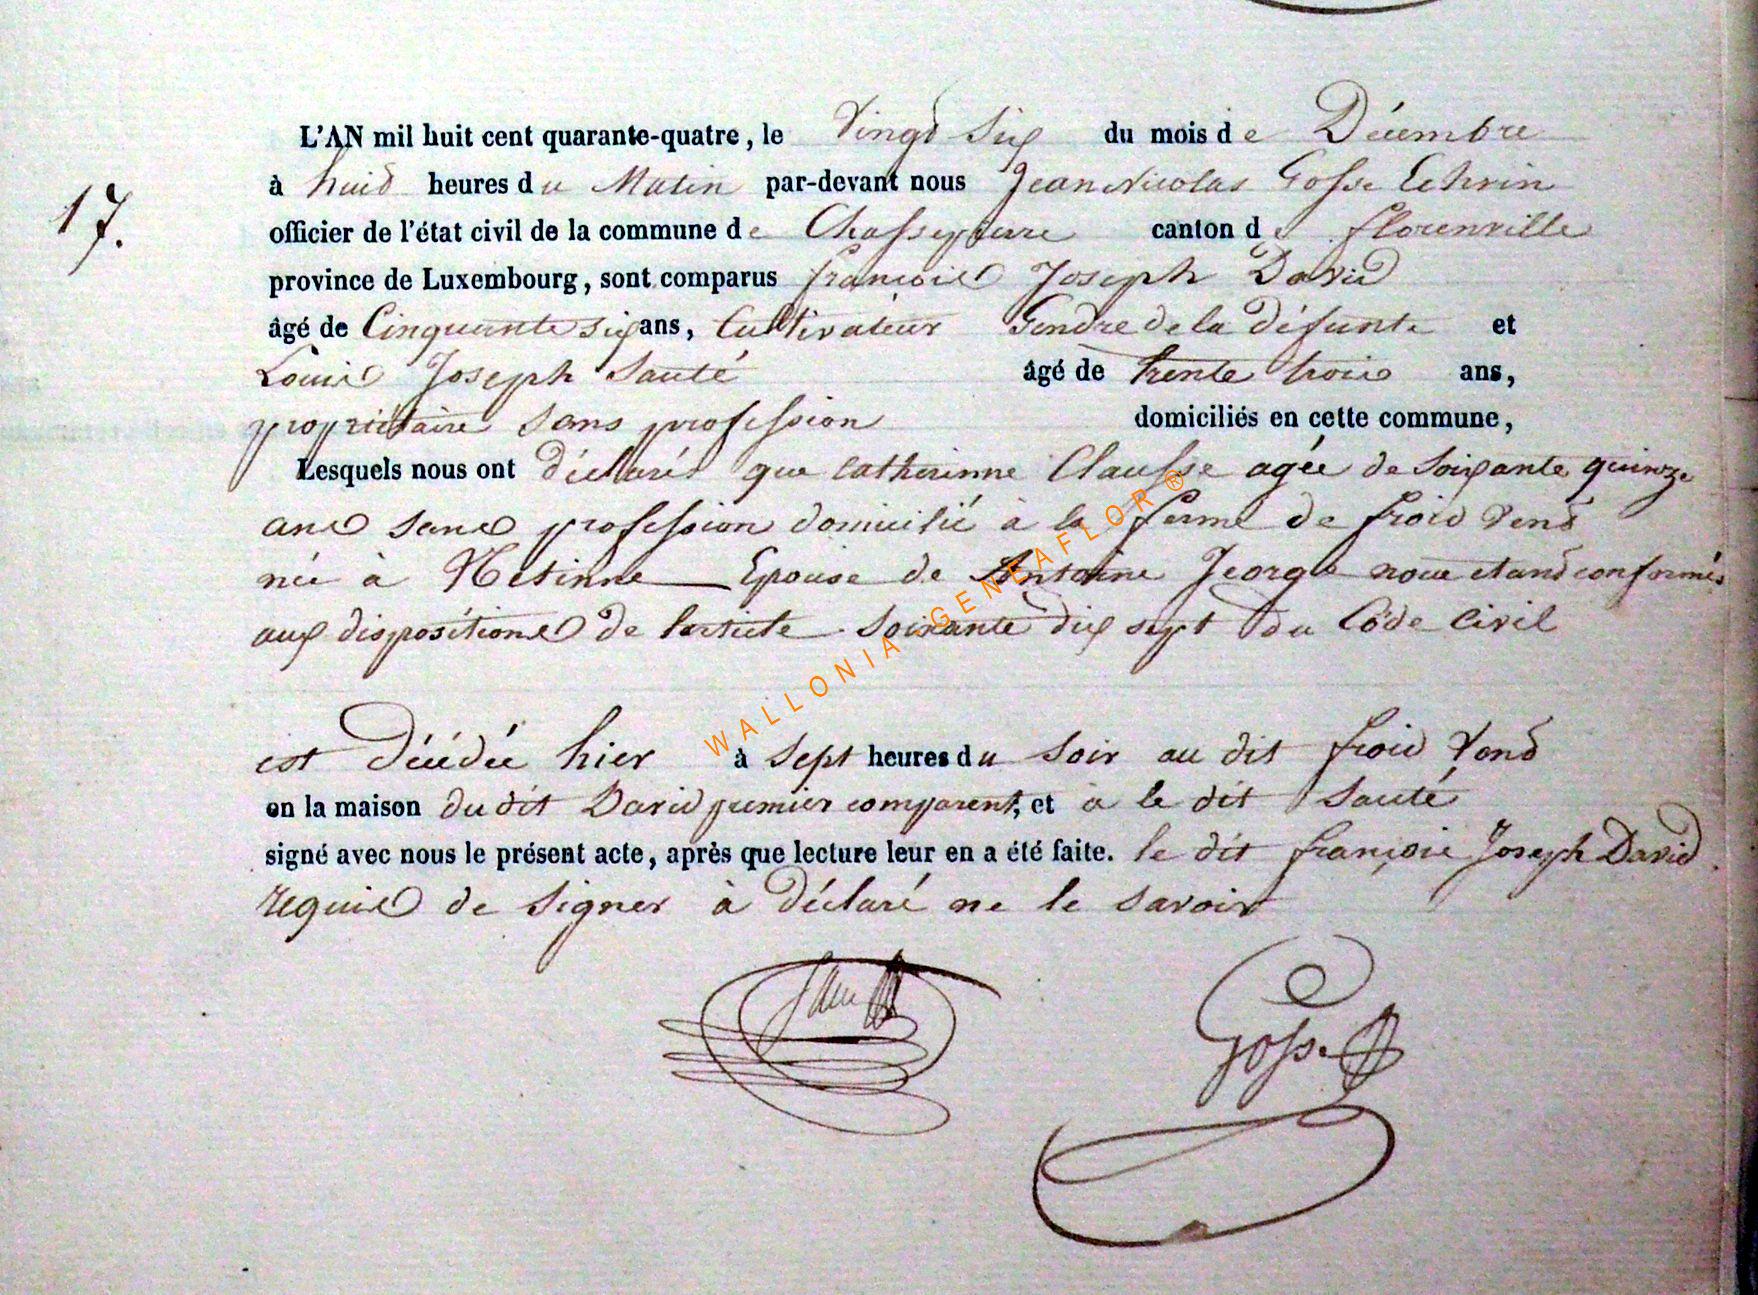 L'AN mil huit cent quarante-quatre, le Vingt Six du mois de Décembre
à huit heures du Matin par-devant nous Jean Nicolas Gosse Echvin
17.
officier de l'état civil de la commune de Chassepierre canton de florenville
province de Luxembourg, sont comparus francois Joseph David
âgé de Cinquante six ans, Cultivateur Gendre de la défunte et
Louis Joseph Sauté âgé de trente trois ans,
propriétaire sans profession domiciliés en cette commune,
Lesquels nous ont déclarés que Catherinne Clausse agée de Soixante quinze
ans sans profession domicilié à la ferme de froid Vend
née à Epouse de Antoine Jeorge nous etant conformés
aux dispositions de l'article Soixante dix sept du Code Civil
est décédée hier à Sept heures du Soir au dit froid Vend
en la maison du dit David premier comparent, et à le dit Sauté
signé avec nous le présent acte, après que lecture leur en a été faite. le dit françois Joseph David
requis de Signer à déclaré ne le savoir
Gosse
WALLONIA GENEAFLOR ®